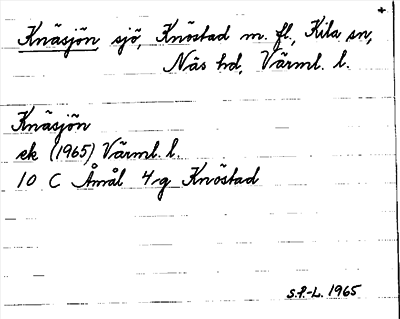 +
Knäsjön sjö, Knöstad m. fl., Kila sn,
Näs hd, Värml. l.
Knäsjön
ek (1965) Värml. l.
10 C Åmål 4g Knöstad
S.P.-L. 1965